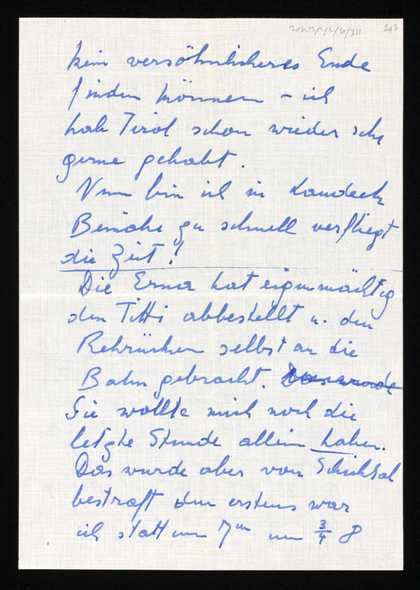 kein versöhnlicheres Ende
finden können – ich
hab Tirol schon wieder sehr
gerne gehabt.
Nun bin ich in Landeck
Beinahe zu schnell verfliegt
die Zeit!
Die Erna hat eigenmächtig
den Titti abbestellt u. den
selbst an die
Bahn gebracht.
Sie wollte mich noch die
letzte Stunde allein haben.
Das wurde aber vom Schicksal
bestraft denn erstens war
ich statt um 7 um 3/4 8